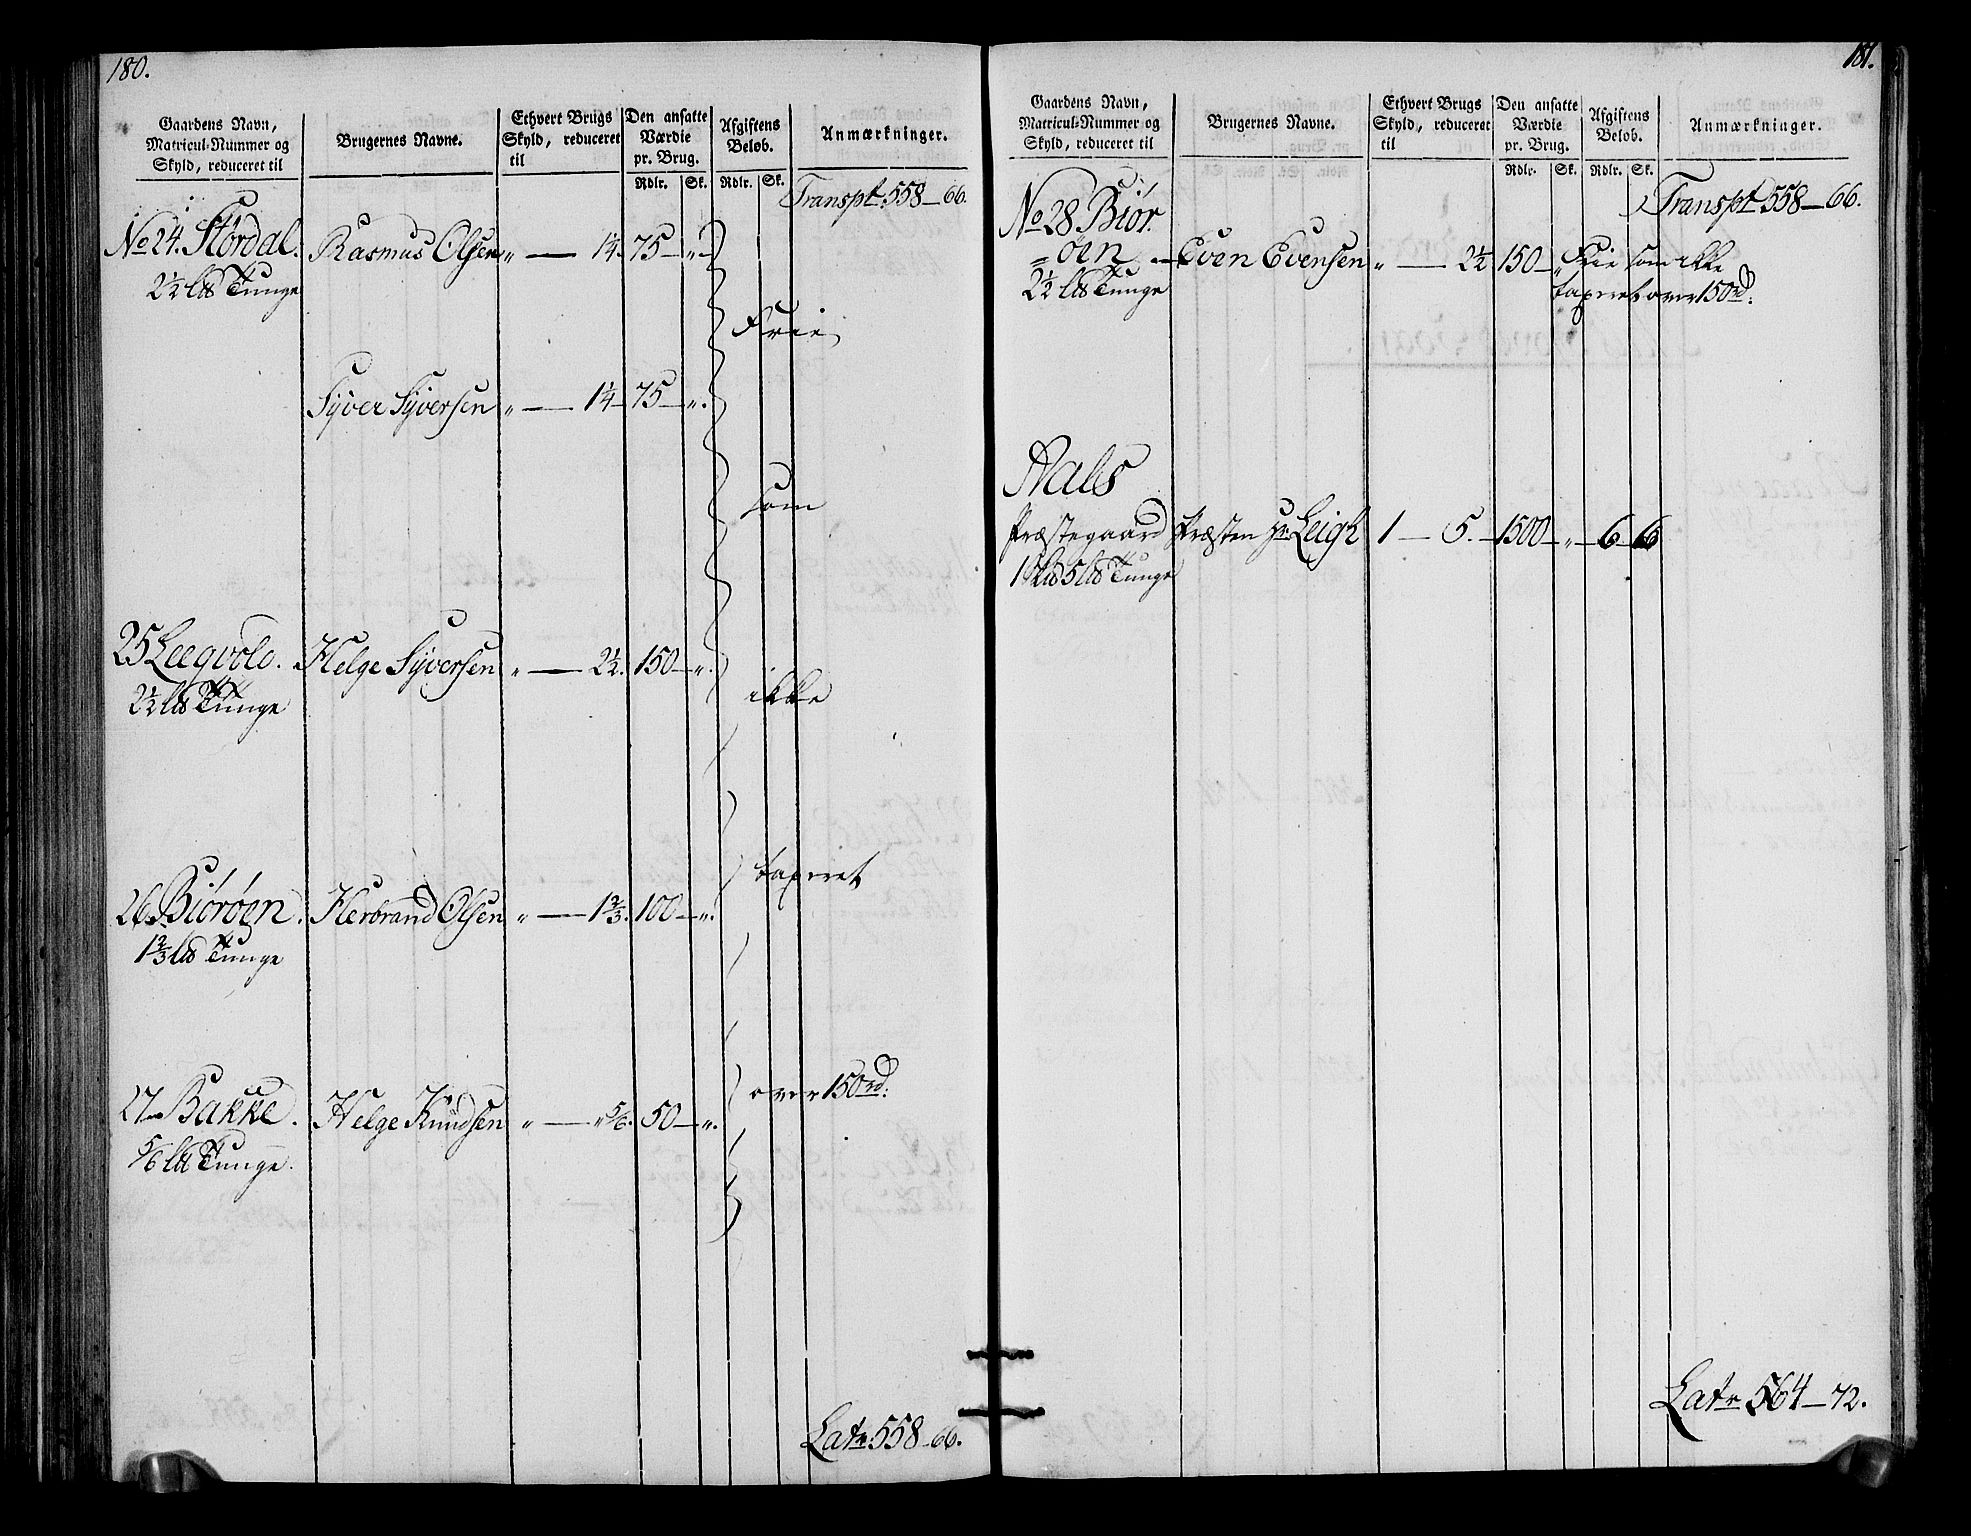 180.
Gaardens Navn, Matricul-Nummer og Skyld, reduceret til
Brugernes Navne.
Ethvert Brugs Skyld, reduceret til
Den ansatte Værdie pr. Brug.
Afgiftens Beløb.
Anmærkninger.
Rdlr. Sk. Rdlr. Sk.
Transpt 558 – 66.
No 24. Stördal. Rasmus Olsen „ — 1¼. 75 – „.
2½ lb Tunge
Frie
Syver Syversen „ — 1¼ 75 – „.
som
25 Leeqvold. Helge Syversen „ — 2½. 150 – „.
2½ lb Tunge
ikke
taxeret
26 Biöröen. Herbrand Olsen „ — 1⅔. 100 – „.
1⅔ lb Tunge
over 150 rd.
27 Bakke. Helge Knudsen „ — „ 5/6. 50 – „.
5/6 lb Tunge.
Lat. 558 – 66.
181.
Gaardens Navn, Matricul-Nummer og Skyld, reduceret til
Brugernes Navne.
Ethvert Brugs Skyld, reduceret til
Den ansatte Værdie pr. Brug.
Afgiftens Beløb.
Anmærkninger.
Rdlr. Sk. Rdlr. Sk.
Transpt 558 – 66.
No 28 Biör.
= öen — Even Evensen „ — 2½ 150 – „ Frie som ikke
2½ lb Tunge taxeret over 150 rd.
Aals
Præstegaard Præsten Hr Leigh 1 — 5. – 1500 – „ – 6 – 6
1 Skb 5 lb Tunge
Lat. 564 – 72.